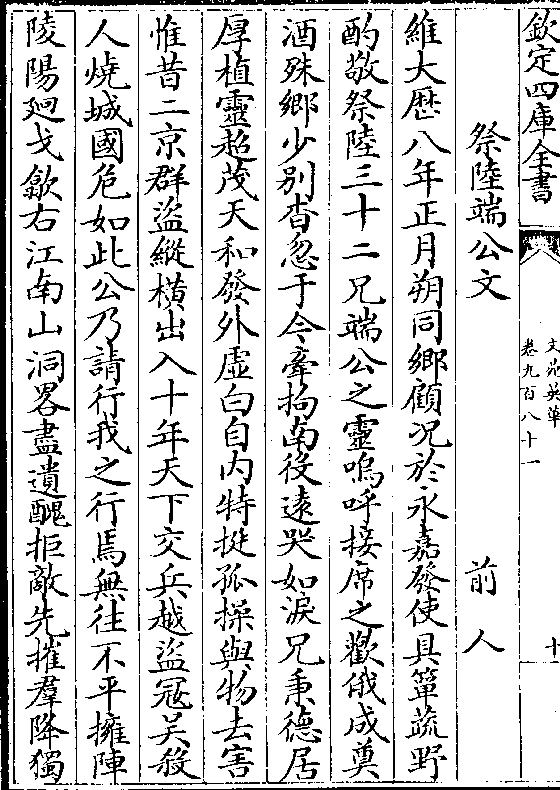 欽定四庫全書
文苑英華
卷九百八十一
十
祭陸端公文 前人
維大歷八年正月朔同鄉顧況於永嘉發使具簞蔬野
酌敬祭陸三十二兄端公之靈嗚呼接席之歡俄成奠
酒殊鄉少别杳忽于今牽拘南役逺哭如淚兄秉德居
厚植靈超茂天和發外虛白自内特挺孤操與物去害
惟昔二京群盜縱橫出入十年天下交兵越盜冦吴殺
人燒城國危如此公乃請行我之行焉無往不平擁陣
陵陽廻戈歙右江南山洞畧盡遺醜拒敵先摧羣降獨